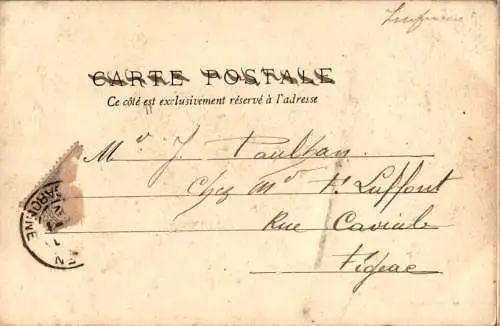 Imprimé
CARTE POSTALE
Ce côté est exclusivement réservé à l'adresse
Mr J. Paulhan
Chez Mr F. Luffont
Rue Caviale
Figeac
GARONNE